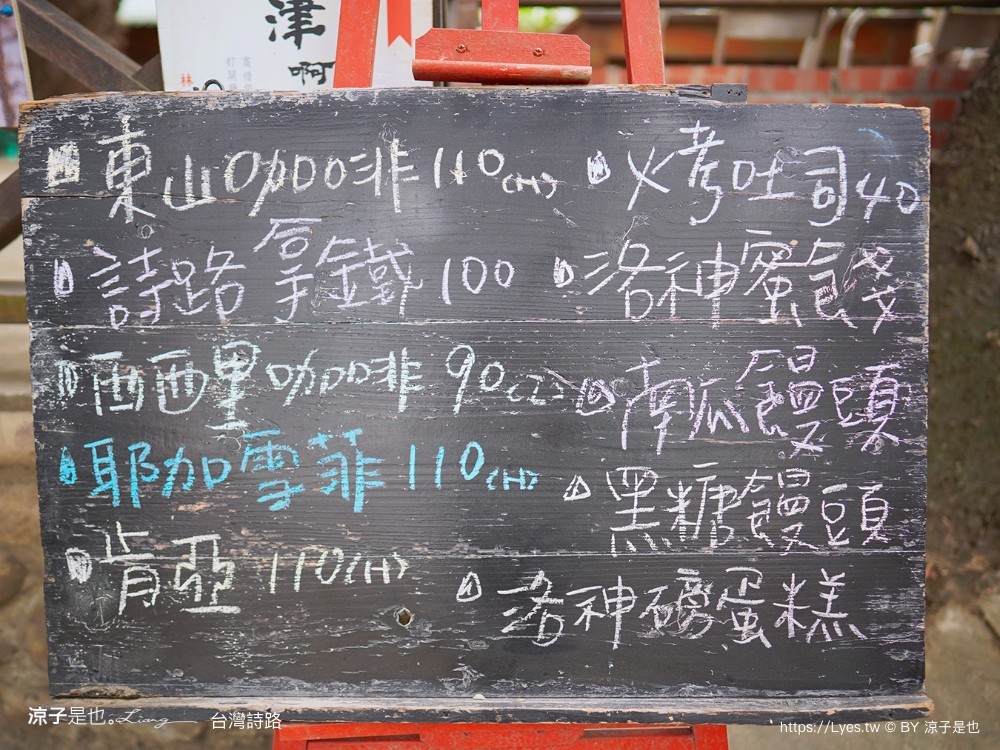 津
啊
林
東山咖啡110(H)
詩路拿鐵100
西西里咖啡90(I)
耶加雪菲110(H)
肯亞110(H)
火烤吐司40
洛神蜜餞
南瓜饅頭
黑糖饅頭
洛神磅蛋糕
涼子是也。Liang 台灣詩路
https://Lyes.tw © BY 涼子是也